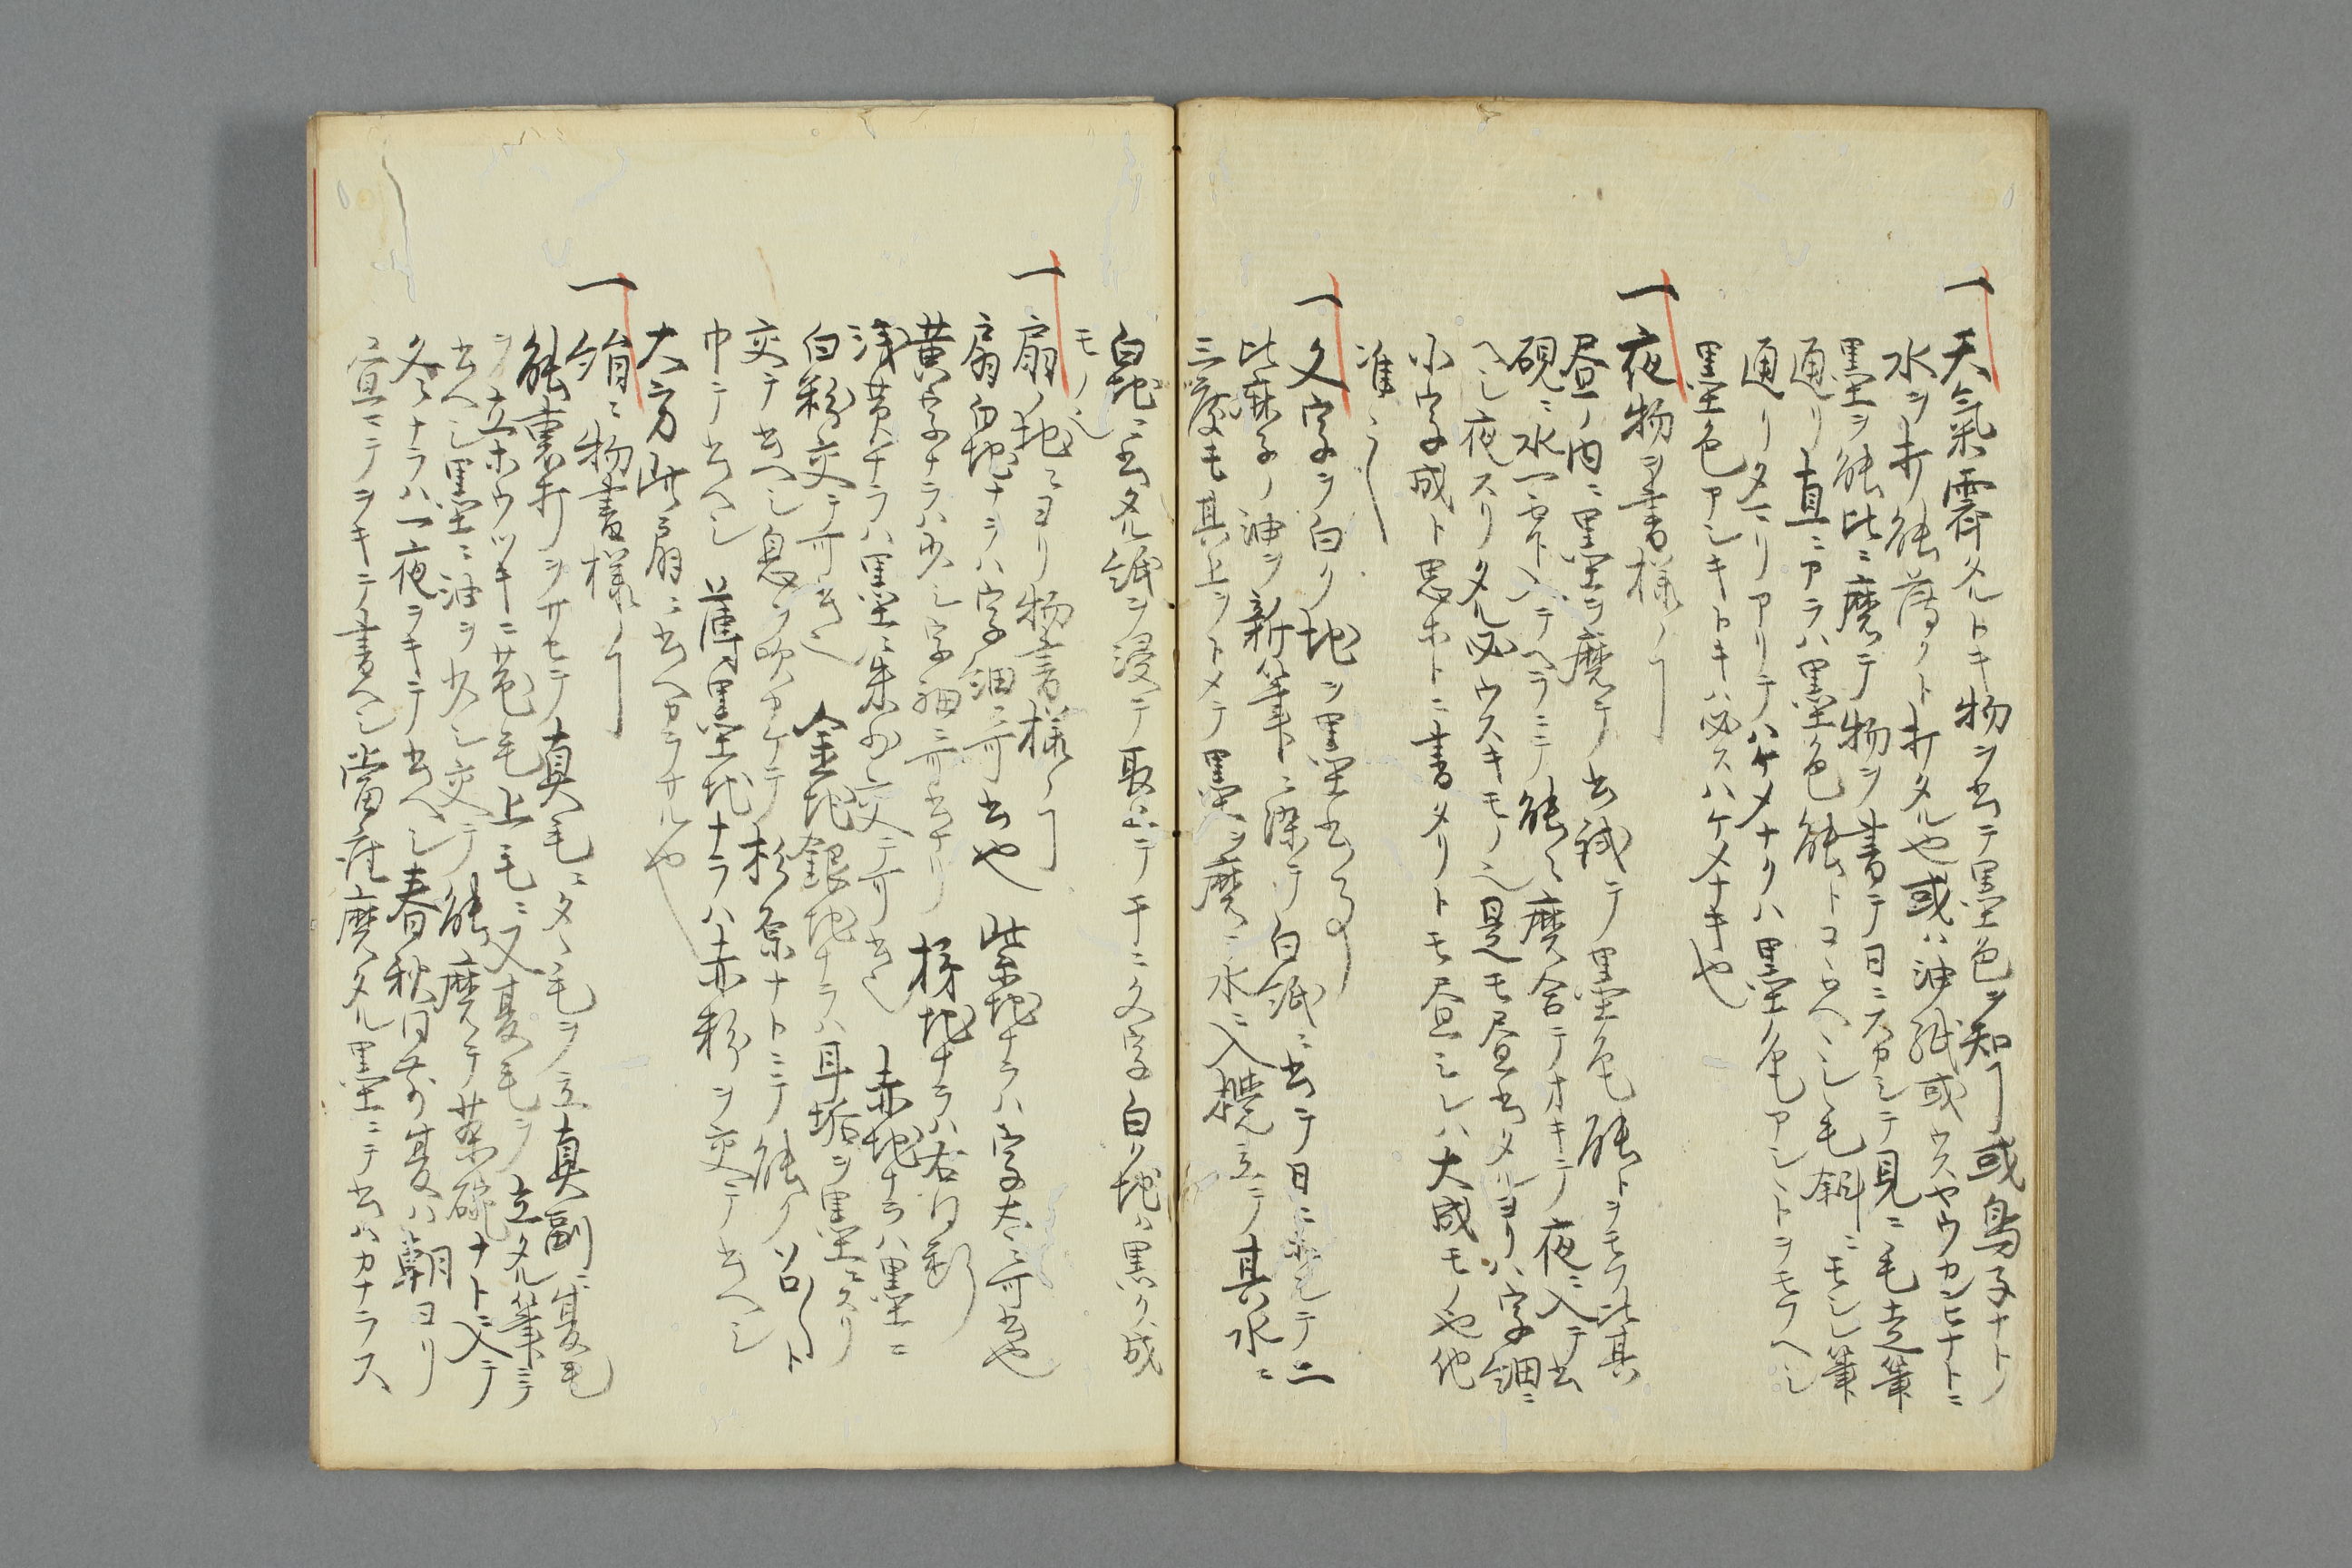 一天氣霽タルトキ物ヲ书テ墨色ヲ知ヿ或鳥子ナトノ
水ヲ打能薄クト打タル也或ハ油紙或ウスヤウカンヒナトニ
墨ヲ能比ニ磨テ物ヲ書テ日ニスカシテ見ニ毛立筆
通リ直ニアラハ墨色能トコヽロヘシ毛斜ニモシ筆
通リタニリアリテハケメナクハ墨ノ色アシトヲモフヘシ
墨色アシキトキハ必スハケメナキ也
一夜物ヲ書様ノヿ
昼ノ内ニ墨ヲ磨テ书試テ墨色能トヲモフ比其
硯ニ水一雫入テヘラニテ能々磨合テオキテ夜ニ入テ书
ヘシ夜スリタル必ウスキモノ也是モ昼书タルヨリハ字細ニ
小字成ト思ホトニ書タリトモ昼ミレハ大成モノ也他
准之
一文字ヲ白ク地ヲ黒书事
比麻子ノ油ヲ新筆ニ染テ白紙ニ书テ日ニ乾テ二
三度モ其上ヲトメテ墨ヲ磨ニ水ニ入攪立テ其水ニ
白地ニ书タル紙ヲ浸テ取上テ干ニ文字白ク地ハ黒ク成
モノ也
一扇ノ地ニヨリ物書様ノヿ
扇白地ナラハ字細ニ可书也　紫地ナラハ字太ニ可书也
黄字ナラハ少シ字細ニ可书ナリ　　地ナラハ右同断
浅黄ナラハ墨ニ朱少交テ可书也　赤地ナラハ墨ニ
白粉交テ可书也　金地銀地ナラハ耳垢ヲ墨ニスリ
交テ书ヘシ息ヲ吹カケテ杉原ナトニテ能クソロ〳〵ト
巾テ书ヘシ　薄墨地ナラハ赤粉ヲ交テ书ヘシ
大方此扇ニ书ヘカラサル也
一絹ニ物書様ノヿ
能裏打ヲサセテ真毛ニタヽ毛ヲ立真副ニ夏毛
ヲ立ホウツキニ　毛上毛ニ又夏毛ヲ立タル筆ニテ
书ヘシ墨ニ油ヲ少シ交テ能磨テ茶碗ナトニ入テ
冬ナラハ一夜ヲキテ书ヘシ春秋同前夏ハ朝ヨリ
宣ニテヲキテ書ヘシ當座磨タル墨ニテ书ハカナラス